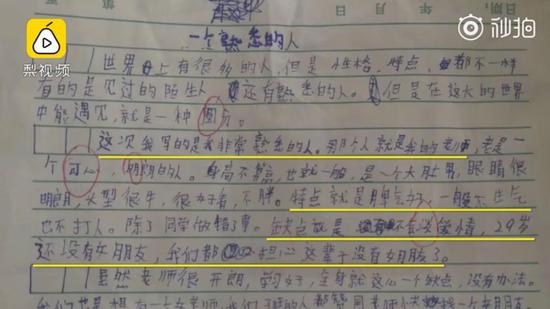 梨视频
秒拍
年 月 日期:
一个熟悉的人
世界上有很多的人,但是性格,特点,都不一样
有的是见过的陌生人,还有熟悉的人。但是在这大的世界
中能遇见,就是一种
这次我写的是我非常熟悉的人。那个人就是我的老师,老是一
个可心,明朗的人。身高不算高,也就一般,是一个大肚男,眼睛很
明朗,大型很牛,很好看,不胖。特点就是脾气好,一般不生气
也不打人。除了同学做错了事。缺点就是不会谈爱情,29岁
还没有女朋友,我们都担心这辈子没有女朋友了。
虽然老师很开朗,学习好,全身就这么一个缺点,没有办法。
我们总是想有一